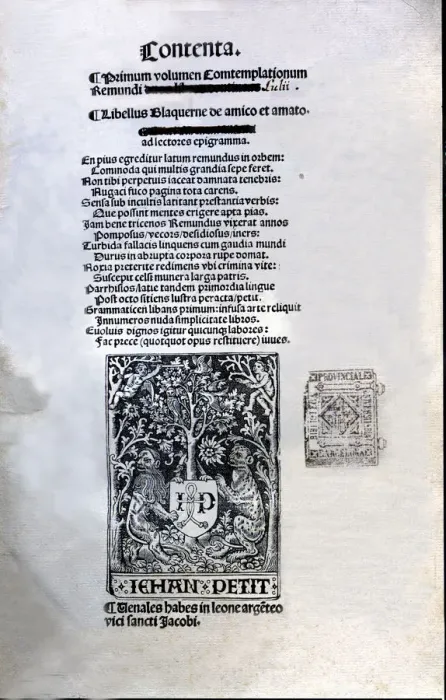 Contenta.
¶ Primum volumen Contemplationum
Remundi Lulii.
¶ Libellus Blaquerne de amico et amato.
ad lectores epigramma.
En pius egreditur latum remundus in orbem:
Commoda qui multis grandia sepe feret.
Non tibi perpetuis iaceat damnata tenebris:
Nugaci fuco pagina tota carens.
Sensa sub incultis latitant prestantia verbis:
Que possint mentes erigere apta pias.
Jam bene tricenos Remundus vixerat annos
Pomposus/vecors/desidiosus/iners:
Turbida fallacis linquens cum gaudia mundi
Durus in abrupta corpora rupe domat.
Noxia preterite redimens vbi crimina vite:
Suscepit celsi munera larga patris.
Parrhisios/latie tandem primordia lingue
Post octo sitiens lustra peracta/petit.
Grammaticen libans primum: infusa arte reliquit
Innumeros nuda simplicitate libros.
Euoluis dignos igitur quicunque labores:
Fac prece (quotquot opus restituere) iuues.
IP
IEHAN PETIT
¶ Uenales habes in leone argēteo
vici sancti Jacobi.
PROVINCIALES